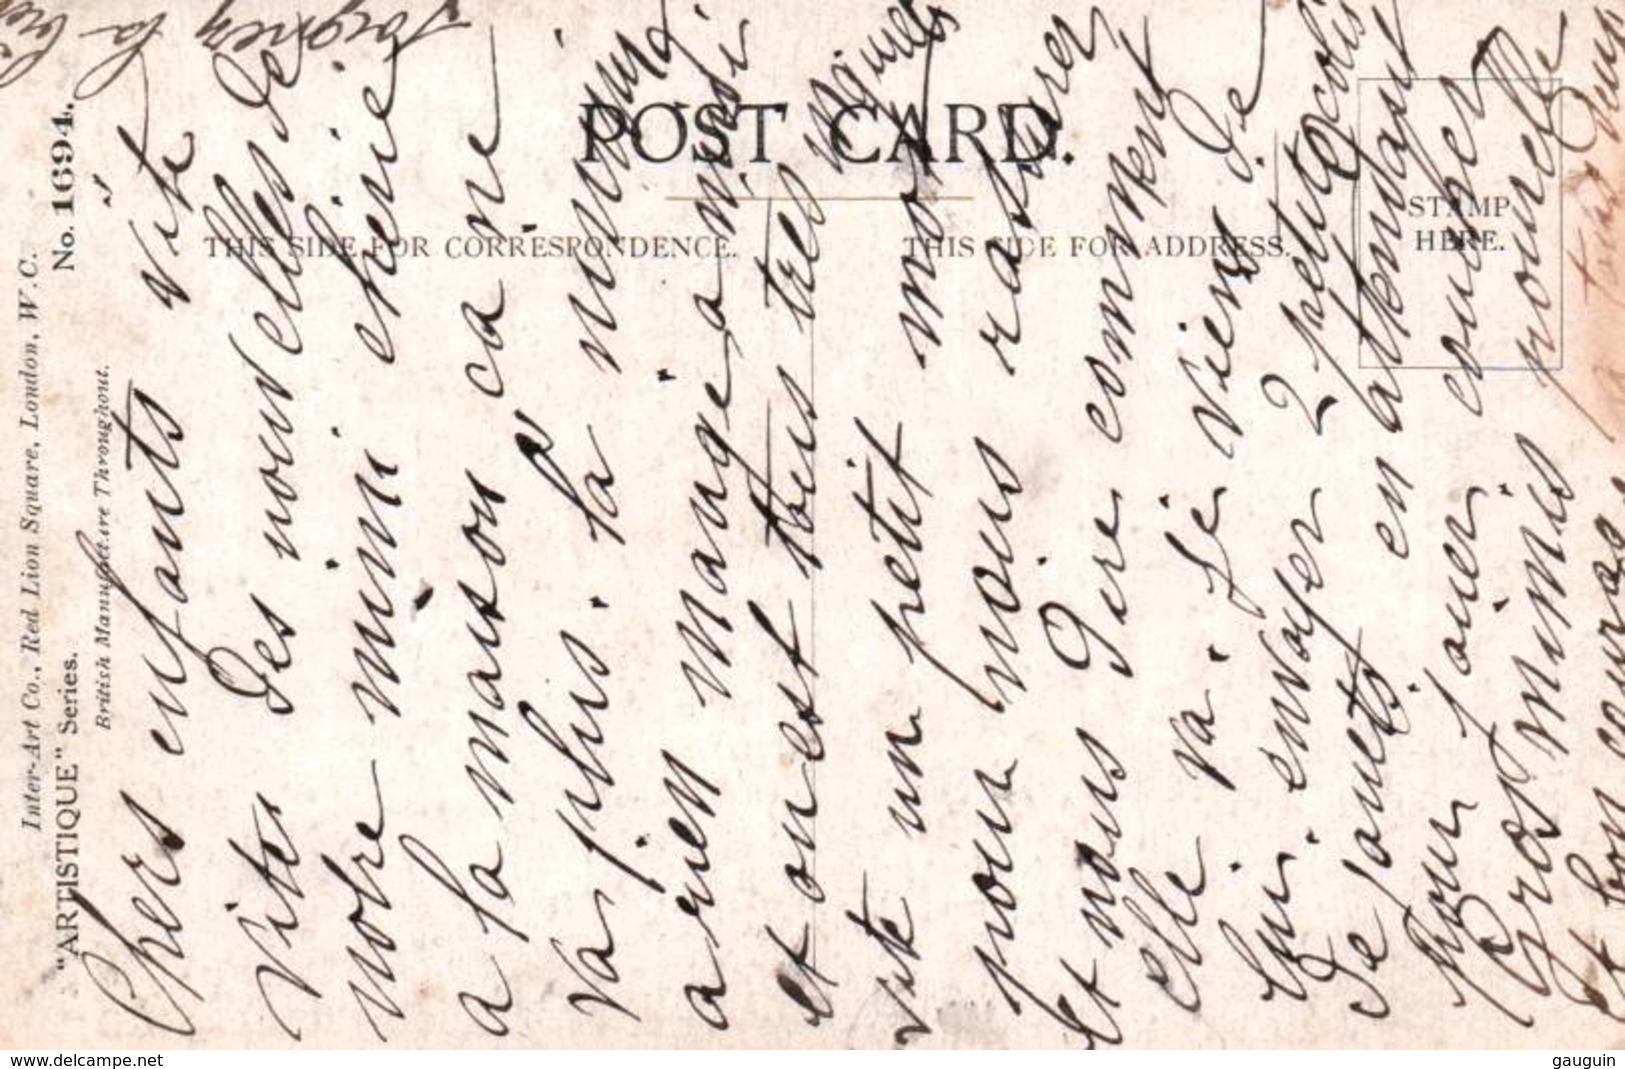 Inter-Art Co., Red Lion Square, London, W.C.
"ARTISTIQUE" Series.
No. 1694.
British Manufacture Throughout.
POST CARD.
THIS SIDE FOR CORRESPONDENCE.
THIS SIDE FOR ADDRESS.
STAMP
HERE.
Chers enfants vite
vite des nouvelles de
notre mimi cherie
a la maison ca ne
va plus. la
a rien mangé a midi
et on est tous tres
vite un petit mot
pour nous rassurer
et nous dire comment
elle va. Je viens de
lui envoyer 2 petits colis
de jouets en attendant
pour jouer
Gros mimis
et bon courage
Soignez la bien
www.delcampe.net
gauguin